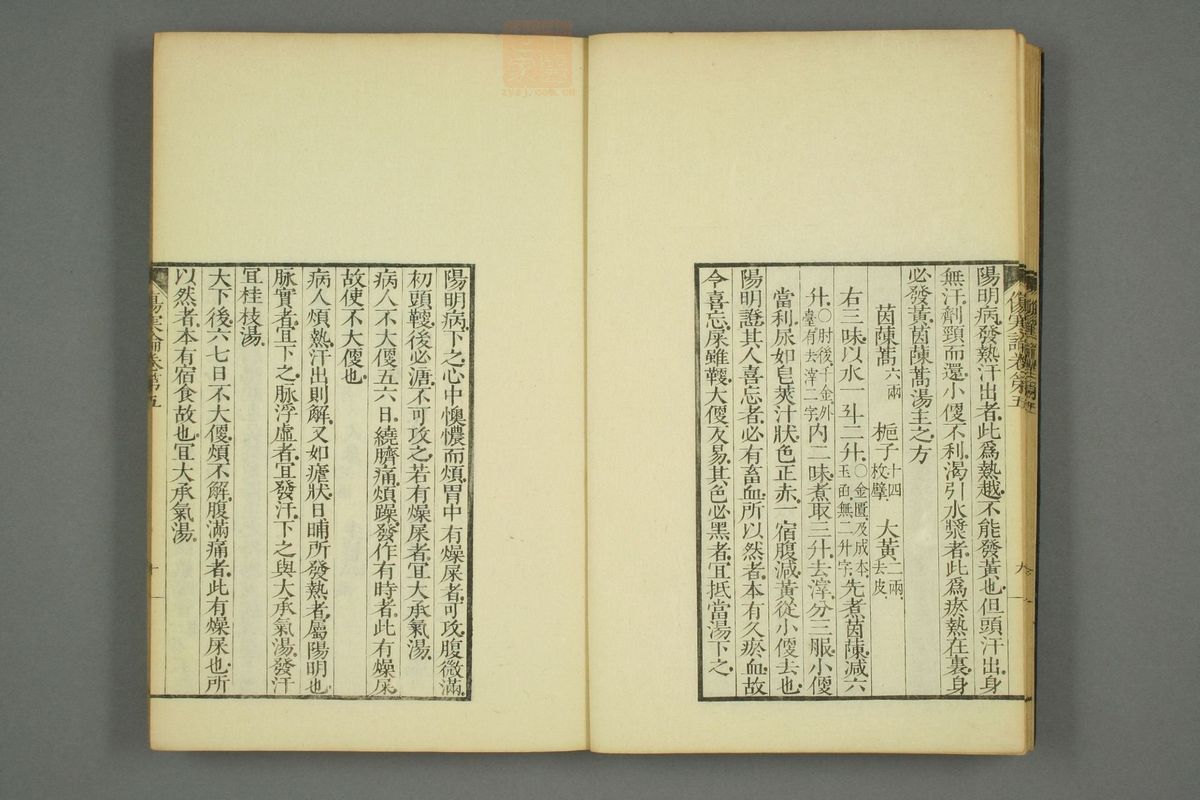 陽明病發熱汗出者此爲熱越不能發黃也但頭汗出身
無汗劑頸而還小便不利渴引水漿者此爲瘀熱在裏身
必發黃茵蔯蒿湯主之方
茵蔯蒿六兩 梔子十四枚擘 大黃二兩去皮
右三味以水一斗二升○金匱及成本玉函無二升字先煮茵蔯減六
升○肘後千金外臺有去滓二字內二味煮取三升去滓分三服小便
當利尿如皂莢汁狀色正赤一宿腹減黃從小便去也
陽明證其人喜忘者必有畜血所以然者本有久瘀血故
令喜忘屎雖鞕大便反易其色必黑者宜抵當湯下之
陽明病下之心中懊憹而煩胃中有燥屎者可攻腹微滿
初頭鞕後必溏不可攻之若有燥屎者宜大承氣湯
病人不大便五六日繞臍痛煩躁發作有時者此有燥屎
故使不大便也
病人煩熱汗出則解又如瘧狀日晡所發熱者屬陽明也
脉實者宜下之脉浮虛者宜發汗下之與大承氣湯發汗
宜桂枝湯
大下後六七日不大便煩不解腹滿痛者此有燥屎也所
以然者本有宿食故也宜大承氣湯
傷寒論卷第五
十
zysj.com.cn